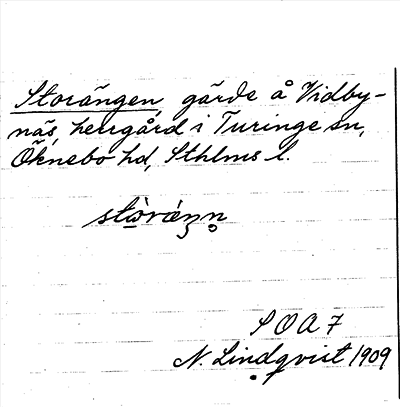 Storängen, gärde å Vidby-
näs, herrgård i Turinge sn,
Öknebo hd, Sthlms l.
stòrǽŋn̥
S O A 7
N. Lindqvist 1909